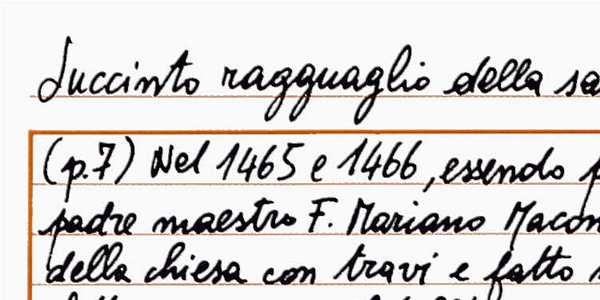 Succinto ragguaglio della sa
(p.7) Nel 1465 e 1466, essendo p
padre maestro F. Mariano Macon
della chiesa con travi e fatto